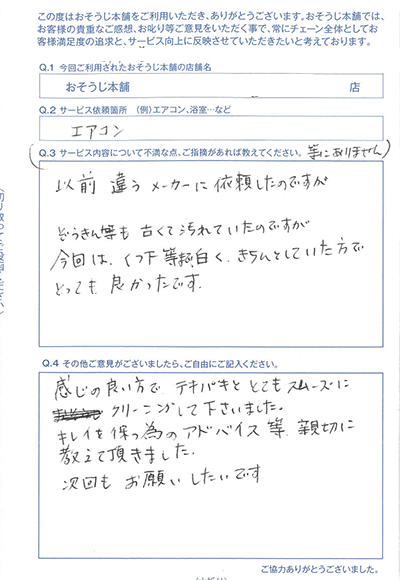 この度はおそうじ本舗をご利用いただき、ありがとうございます。おそうじ本舗では、
お客様の貴重なご感想、お叱り等ご意見をいただく事で、常にチェーン全体としてお
客様満足度の追求と、サービス向上に反映させていただきたいと考えております。
Q.1 今回ご利用されたおそうじ本舗の店舗名
おそうじ本舗 店
Q.2 サービス依頼箇所 (例)エアコン、浴室…など
エアコン
Q.3 サービス内容について不満な点、ご指摘があれば教えてください。
(特にありません)
以前 違う メーカーに依頼したのですが
ぞうきん等も 古くて汚れていたのですが
今回は、くつ下等も白く、きちんとしていた方で
とっても 良かったです.
Q.4 その他ご意見がございましたら、ご自由にご記入ください。
感じの良い方で テキパキと とてもスムーズに
クリーニングして下さいました。
キレイを保つ為のアドバイス等、親切に
教えて頂きました.
次回も お願いしたいです
ご協力ありがとうございました。